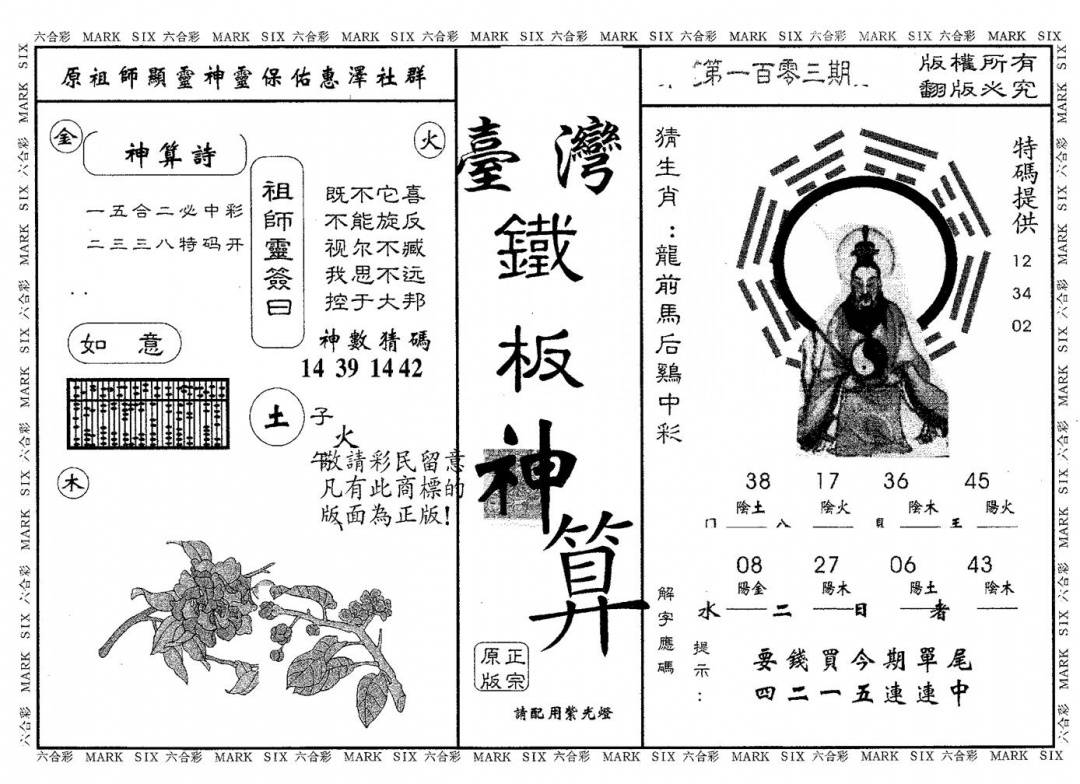 六合彩 MARK SIX 六合彩 MARK SIX 六合彩 MARK SIX 六合彩 MARK SIX 六合彩 MARK SIX 六合彩 MARK SIX 六合彩 MARK SIX 六合彩 MARK SIX
原祖師顯靈神靈保佑惠澤社群
金
火
神算詩
一五合二必中彩
二三三八特码开
祖師靈簽曰
既不它喜
不能旋反
视尔不臧
我思不远
控于大邦
神數猜碼
14 39 14 42
如 意
土
子
火
午
木
敬請彩民留意
凡有此商標的
版面為正版!
臺灣
鐵
板
神
算
正宗
原版
請配用紫光燈
第一百零三期
版權所有
翻版必究
猜生肖:龍前馬后鷄中彩
特碼提供
12
34
02
38 17 36 45
陰土 陰火 陰木 陽火
08 27 06 43
陽金 陽木 陽土 陰木
水 二 日 者
解字應碼
提示:
要錢買今期單尾
四二一五連連中
六合彩 MARK SIX 六合彩 MARK SIX 六合彩 MARK SIX 六合彩 MARK SIX 六合彩 MARK SIX 六合彩 MARK SIX 六合彩 MARK SIX 六合彩 MARK SIX